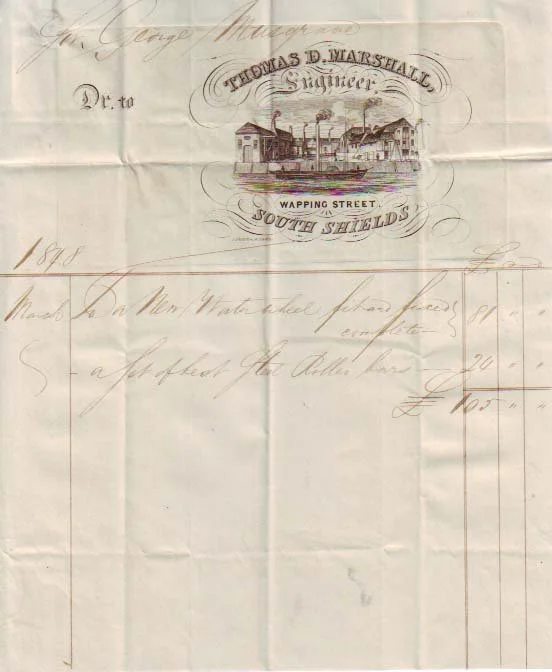 Mr. George Musgrave
THOMAS D. MARSHALL,
Engineer
Dr. to
WAPPING STREET.
IN
SOUTH SHIELDS
1848 £ s d
March To a New Water wheel fit and fixed
complete 81 " "
- a set of best Roller bars - 24 " "
£ 105 " "